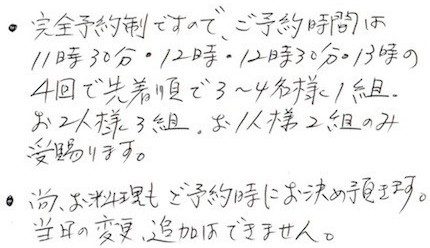 • 完全予約制ですので、ご予約時間は
11時30分・12時・12時30分・13時の
4回で先着順で3〜4名様1組.
お2人様3組、お1人様2組のみ
受賜ります。
• 尚、お料理もご予約時にお決め頂きます。
当日の変更、追加はできません。